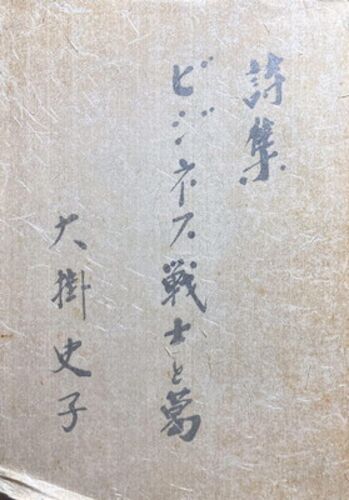 詩集
ビジネス戦士と葛
大掛史子